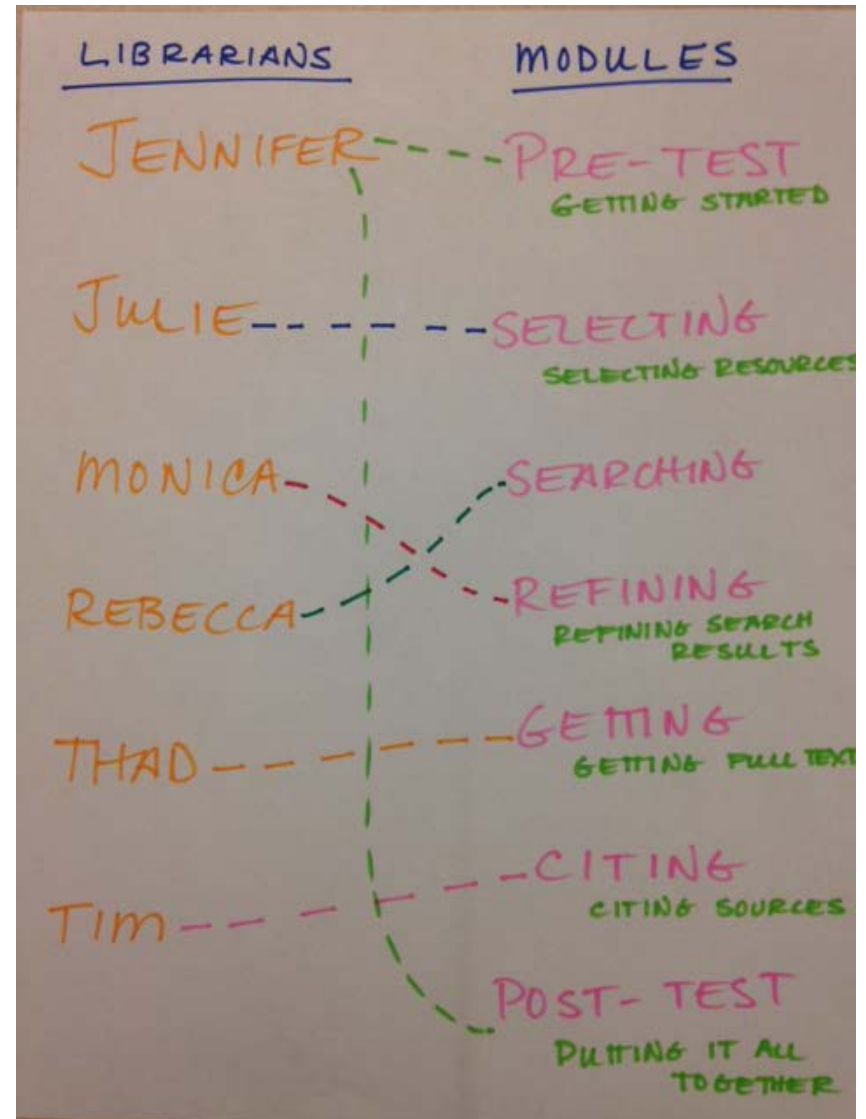 LIBRARIANS
JENNIFER
JULIE
MONICA
REBECCA
THAD
TIM
MODULES
PRE-TEST
GETTING STARTED
SELECTING
SELECTING RESOURCES
SEARCHING
REFINING
REFINING SEARCH
RESULTS
GETTING
GETTING FULL TEXT
CITING
CITING SOURCES
POST-TEST
PUTTING IT ALL
TOGETHER